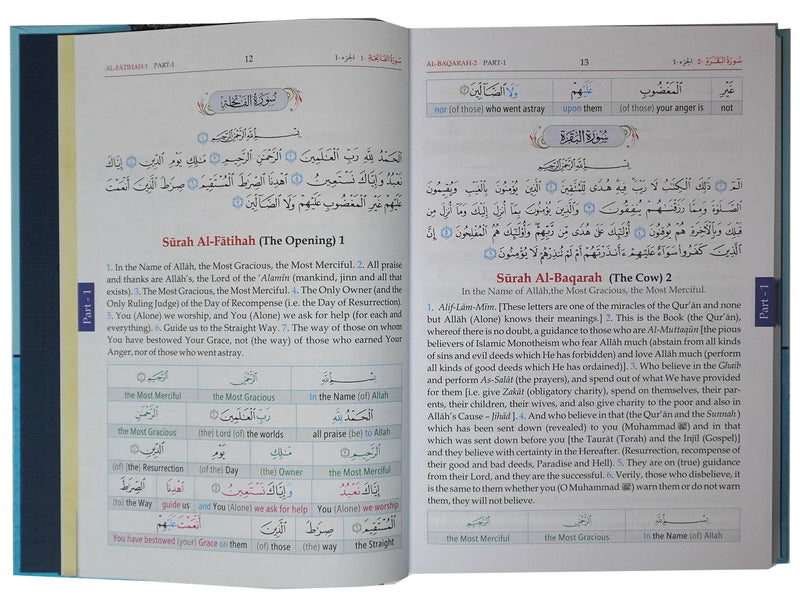 AL-FĀTIHAH-1 PART-1 12 الجزء-١ سورة الفاتحة -١
سورة الفاتحة
بِسْمِ اللَّهِ الرَّحْمَٰنِ الرَّحِيمِ ١
الْحَمْدُ لِلَّهِ رَبِّ الْعَالَمِينَ ٢ الرَّحْمَٰنِ الرَّحِيمِ ٣ مَالِكِ يَوْمِ الدِّينِ ٤ إِيَّاكَ
نَعْبُدُ وَإِيَّاكَ نَسْتَعِينُ ٥ اهْدِنَا الصِّرَاطَ الْمُسْتَقِيمَ ٦ صِرَاطَ الَّذِينَ أَنْعَمْتَ
عَلَيْهِمْ غَيْرِ الْمَغْضُوبِ عَلَيْهِمْ وَلَا الضَّالِّينَ ٧
Sūrah Al-Fātihah (The Opening) 1
1. In the Name of Allāh, the Most Gracious, the Most Merciful. 2. All praise
and thanks are Allāh's, the Lord of the 'Alamīn (mankind, jinn and all that
exists). 3. The Most Gracious, the Most Merciful. 4. The Only Owner (and the
Only Ruling Judge) of the Day of Recompense (i.e. the Day of Resurrection).
5. You (Alone) we worship, and You (Alone) we ask for help (for each and
everything). 6. Guide us to the Straight Way. 7. The way of those on whom
You have bestowed Your Grace, not (the way) of those who earned Your
Anger, nor of those who went astray.
بِسْمِ اللَّهِ الرَّحْمَٰنِ الرَّحِيمِ
the Most Merciful the Most Gracious In the Name (of) Allah
الْحَمْدُ لِلَّهِ رَبِّ الْعَالَمِينَ الرَّحْمَٰنِ
the Most Gracious (the) Lord (of) the worlds all praise (be) to Allah
الرَّحِيمِ مَالِكِ يَوْمِ الدِّينِ
(of) (the) Resurrection (of) the Day (the) Owner the Most Merciful
إِيَّاكَ نَعْبُدُ وَإِيَّاكَ نَسْتَعِينُ اهْدِنَا الصِّرَاطَ
(to) the Way guide us and You (Alone) we ask for help You (Alone) we worship
الْمُسْتَقِيمَ صِرَاطَ الَّذِينَ أَنْعَمْتَ عَلَيْهِمْ
You have bestowed (your) Grace on them (of) those (the) way the Straight
Part - 1
AL-BAQARAH-2 PART-1 13 الجزء-١ سورة البقرة -٢
غَيْرِ الْمَغْضُوبِ عَلَيْهِمْ وَلَا الضَّالِّينَ
nor (of those) who went astray upon them (of those) your anger is not
سورة البقرة
بِسْمِ اللَّهِ الرَّحْمَٰنِ الرَّحِيمِ
الٓمٓ ١ ذَٰلِكَ الْكِتَابُ لَا رَيْبَ فِيهِ هُدًى لِلْمُتَّقِينَ ٢ الَّذِينَ يُؤْمِنُونَ بِالْغَيْبِ وَيُقِيمُونَ
الصَّلَاةَ وَمِمَّا رَزَقْنَاهُمْ يُنْفِقُونَ ٣ وَالَّذِينَ يُؤْمِنُونَ بِمَا أُنْزِلَ إِلَيْكَ وَمَا أُنْزِلَ مِنْ
قَبْلِكَ وَبِالْآخِرَةِ هُمْ يُوقِنُونَ ٤ أُولَٰئِكَ عَلَىٰ هُدًى مِنْ رَبِّهِمْ وَأُولَٰئِكَ هُمُ الْمُفْلِحُونَ ٥ إِنَّ
الَّذِينَ كَفَرُوا سَوَاءٌ عَلَيْهِمْ أَأَنْذَرْتَهُمْ أَمْ لَمْ تُنْذِرْهُمْ لَا يُؤْمِنُونَ ٦
Sūrah Al-Baqarah (The Cow) 2
In the Name of Allāh,the Most Gracious, the Most Merciful.
1. Alif-Lām-Mīm. [These letters are one of the miracles of the Qur'ān and none
but Allāh (Alone) knows their meanings.] 2. This is the Book (the Qur'ān),
whereof there is no doubt, a guidance to those who are Al-Muttaqūn [the pious
believers of Islamic Monotheism who fear Allāh much (abstain from all kinds
of sins and evil deeds which He has forbidden) and love Allāh much (perform
all kinds of good deeds which He has ordained)]. 3. Who believe in the Ghaib
and perform As-Salāt (the prayers), and spend out of what We have provided
for them [i.e. give Zakāt (obligatory charity), spend on themselves, their par-
ents, their children, their wives, and also give charity to the poor and also in
Allāh's Cause – Jihād]. 4. And who believe in that (the Qur'ān and the Sunnah)
which has been sent down (revealed) to you (Muhammad ﷺ) and in that
which was sent down before you [the Taurāt (Torah) and the Injīl (Gospel)]
and they believe with certainty in the Hereafter. (Resurrection, recompense of
their good and bad deeds, Paradise and Hell). 5. They are on (true) guidance
from their Lord, and they are the successful. 6. Verily, those who disbelieve, it
is the same to them whether you (O Muhammad ﷺ) warn them or do not warn
them, they will not believe.
بِسْمِ اللَّهِ الرَّحْمَٰنِ الرَّحِيمِ
the Most Merciful the Most Gracious In the Name (of) Allah
Part - 1